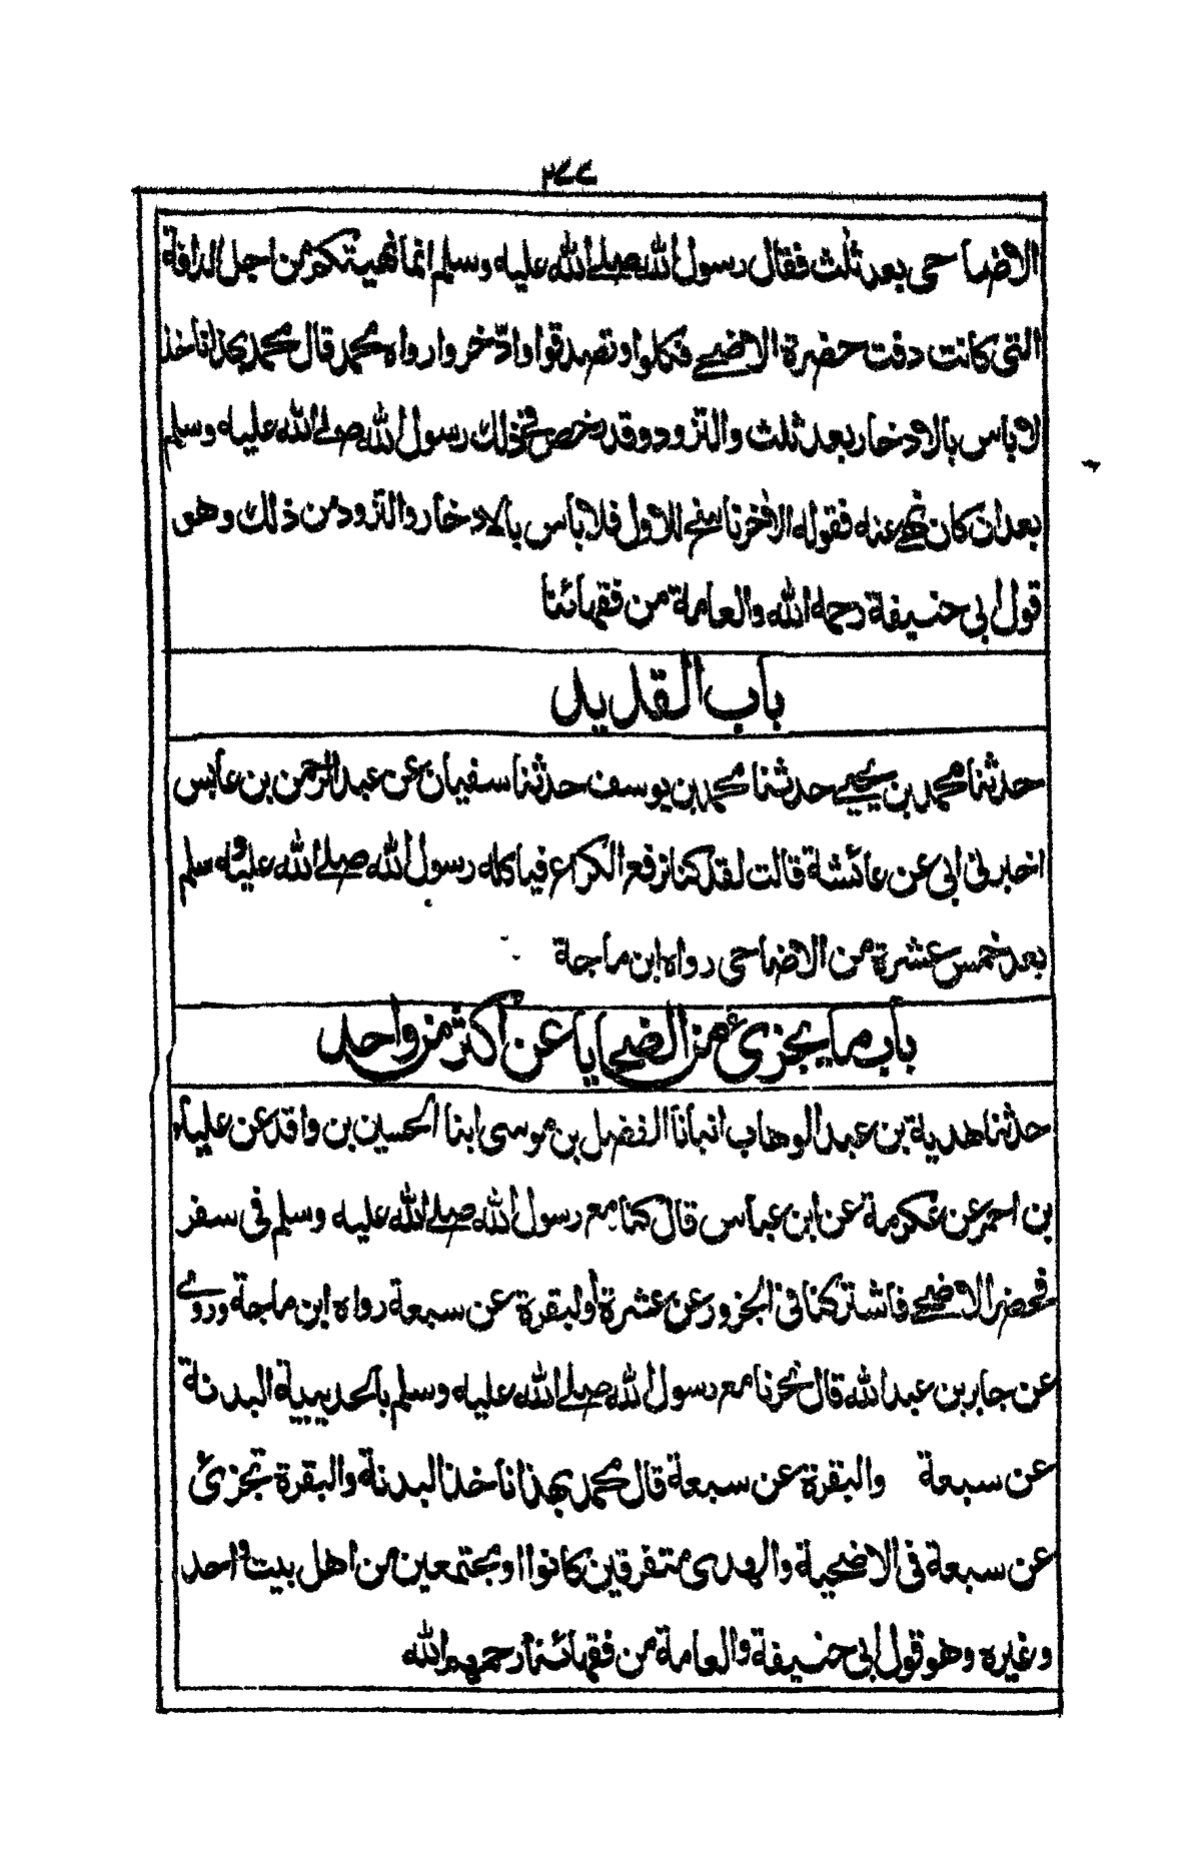 ٣٧٧
الاضاحى بعد ثلث فقال رسول الله صلے الله عليه وسلم انما نهيتكم من اجل الدافة
التى كانت دفت حضرة الاضحے فكلوا وتصدقوا وادّخروا رواه محمد قال محمد بهذا ناخذ
لاباس بالادخار بعد ثلث والتزود وقد رخص فے ذلك رسول الله صلے الله عليه وسلم
بعد ان كان نهے عنه فقوله الاٰخر ناسخ للاول فلا باس بالادخار والتزود من ذلك وهو
قول ابى حنيفة رحمه الله والعامة من فقهائنا
باب القديد
حدثنا محمد بن يحيے حدثنا محمد بن يوسف حدثنا سفيان عن عبد الرحمن بن عابس
اخبرنى ابى عن عائشة قالت لقد كنا نرفع الكراع فياكله رسول الله صلے الله عليه وسلم
بعد خمس عشرة من الاضاحى رواه ابن ماجة
باب ما يجزئ من الضحايا عن اكثر من واحد
حدثنا هدية بن عبد الوهاب انبانا الفضل بن موسى ابنا الحسين بن واقد عن علباء
بن احمر عن عكرمة عن ابن عباس قال كنا مع رسول الله صلے الله عليه وسلم فى سفر
فحضر الاضحے فاشتركنا فى الجزور عن عشرة والبقرة عن سبعة رواه ابن ماجة وروے
عن جابر بن عبد الله قال نحرنا مع رسول الله صلے الله عليه وسلم بالحديبية البدنة
عن سبعة والبقرة عن سبعة قال محمد بهذا ناخذ البدنة والبقرة تجزئ
عن سبعة فى الاضحية والهدى متفرقين كانوا او مجتمعين من اهل بيت واحد
وغيره وهو قول ابى حنيفة والعامة من فقهائنا رحمهم الله